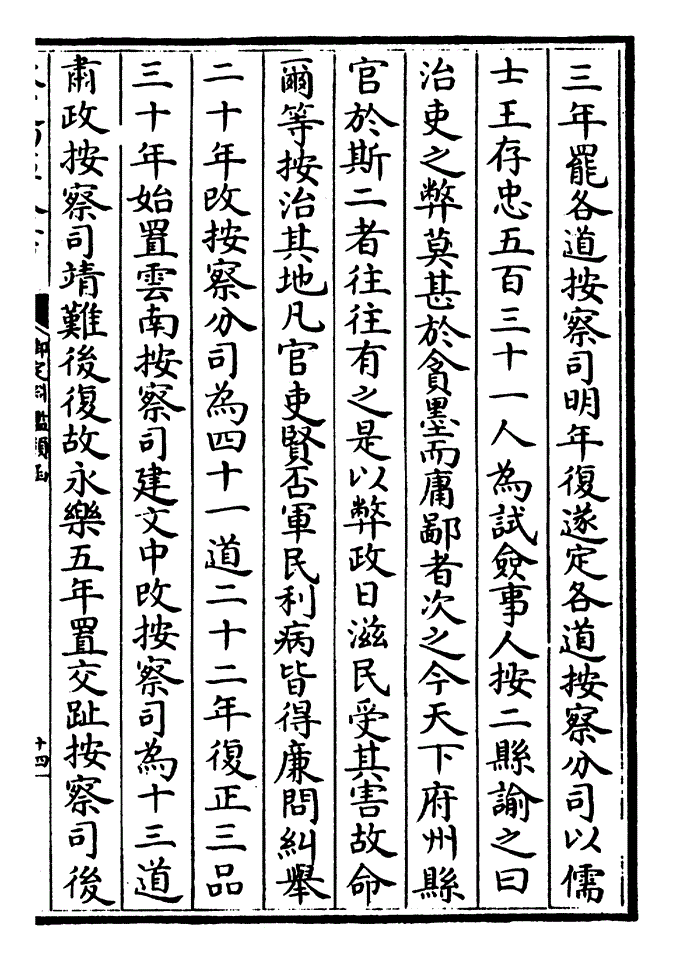 三年罷各道按察司明年復遂定各道按察分司以儒
士王存忠五百三十一人為試僉事人按二縣諭之曰
治吏之弊莫甚於貪墨而庸鄙者次之今天下府州縣
官於斯二者往往有之是以弊政日滋民受其害故命
爾等按治其地凡官吏賢否軍民利病皆得廉問糾舉
二十年改按察分司為四十一道二十二年復正三品
三十年始置雲南按察司建文中改按察司為十三道
肅政按察司靖難後復故永樂五年置交趾按察司後
御定淵鑑類函
十四